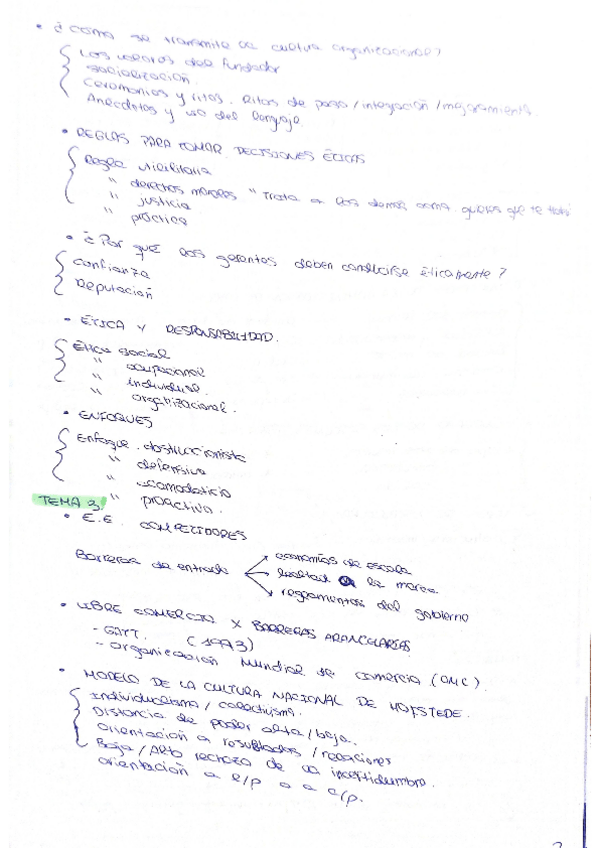 • ¿Cómo se transmite la cultura organizacional?
Los valores del fundador
socialización
Ceremonias y ritos. Ritos de paso / integración / mejoramiento.
Anécdotas y uso del lenguaje
• REGLAS PARA TOMAR DECISIONES ÉTICAS
Regla utilitaria
" derechos morales " Trata a los demás como quieres que te traten
" justicia
" práctica
• ¿Por qué los gerentes deben conducirse éticamente?
Confianza
Reputación
• ÉTICA Y RESPONSABILIDAD.
Ética social
" ocupacional
" individual.
" organizacional.
• ENFOQUES
Enfoque obstruccionista
" defensivo
" acomodaticio
" proactivo.
TEMA 3
• E.E. COMPETIDORES
Barreras de entrada
economías de escala
lealtad a la marca
reglamentos del gobierno
• LIBRE COMERCIO X BARRERAS ARANCELARIAS
- GATT. (1993)
- Organización Mundial de Comercio (OMC).
• MODELO DE LA CULTURA NACIONAL DE HOFSTEDE.
Individualismo / colectivismo.
Distancia de poder alta / baja.
Orientación a resultados / relaciones
Baja / Alto rechazo de la incertidumbre.
orientación a l/p o a c/p.